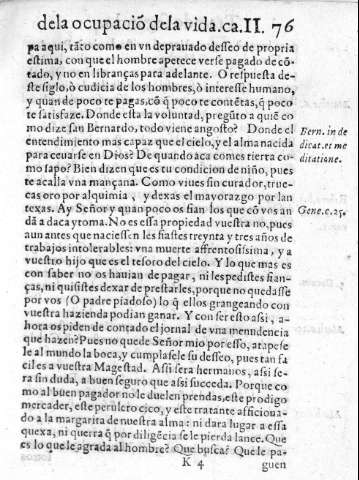 dela ocupació dela vida.ca.II. 76
pa aqui, táto como en vn deprauado desseo de propria
estima, con que el hombre apetece verse pagado de cõ-
tado, y no en libranças para adelante. O respuesta de-
ste siglo, ò cudicia de los hombres, ò interesse humano,
y quan de poco te pagas, cõ q̃ poco te contẽtas, q̃ poco
te satisfaze. Donde esta la voluntad, pregũto a quiẽ co
mo dize san Bernardo, todo viene angosto? Donde el
entendimiento mas capaz que el cielo, y el alma nacida
para ceuarse en Dios? De quando aca comes tierra co-
mo sapo? Bien dizen que es tu condicion de niño, pues
te acalla vna mançana. Como viues sin curador, true-
cas oro por alquimia, y dexas el mayorazgo por lan
texas. Ay Señor y quan poco os fian los que cõ vos an
dã a daca y toma. No es essa propiedad vuestra no, pues
aun antes que naciessen les fiastes treynta y tres años de
trabajos intolerables: vna muerte affrentosissima, y a
vuestro hijo que es el tesoro del cielo. Y lo que mas es
con saber no os hauian de pagar, ni les pedistes fian-
ças, ni quisistes dexar de prestarles, porque no quedasse
por vos (O padre piadoso) lo q̃ ellos grangeando con
vuestra hazienda podian ganar. Y con ser esto assi, a-
hora os piden de contado el jornal de vna menudencia
que hazen? Pues no quede Señor mio por esso, atapese
le al mundo la boca, y cumplasele su desseo, pues tan fa
cil es a vuestra Magestad. Assi sera hermanos, assi se-
ra sin duda, a buen seguro que assi succeda. Porque co
mo al buen pagador no le duelen prendas, este prodigo
mercader, este perulero rico, y este tratante afficiona-
do a la margarita de nuestra alma: ni dara lugar a essa
quexa, ni querra q̃ por diligẽcia se le pierda lance. Que
es lo que le agrada al hombre? Que busca? Que le pa-
K 4 guen
Bern. in de
dicat. et me
ditatione.
Gene.c.25.